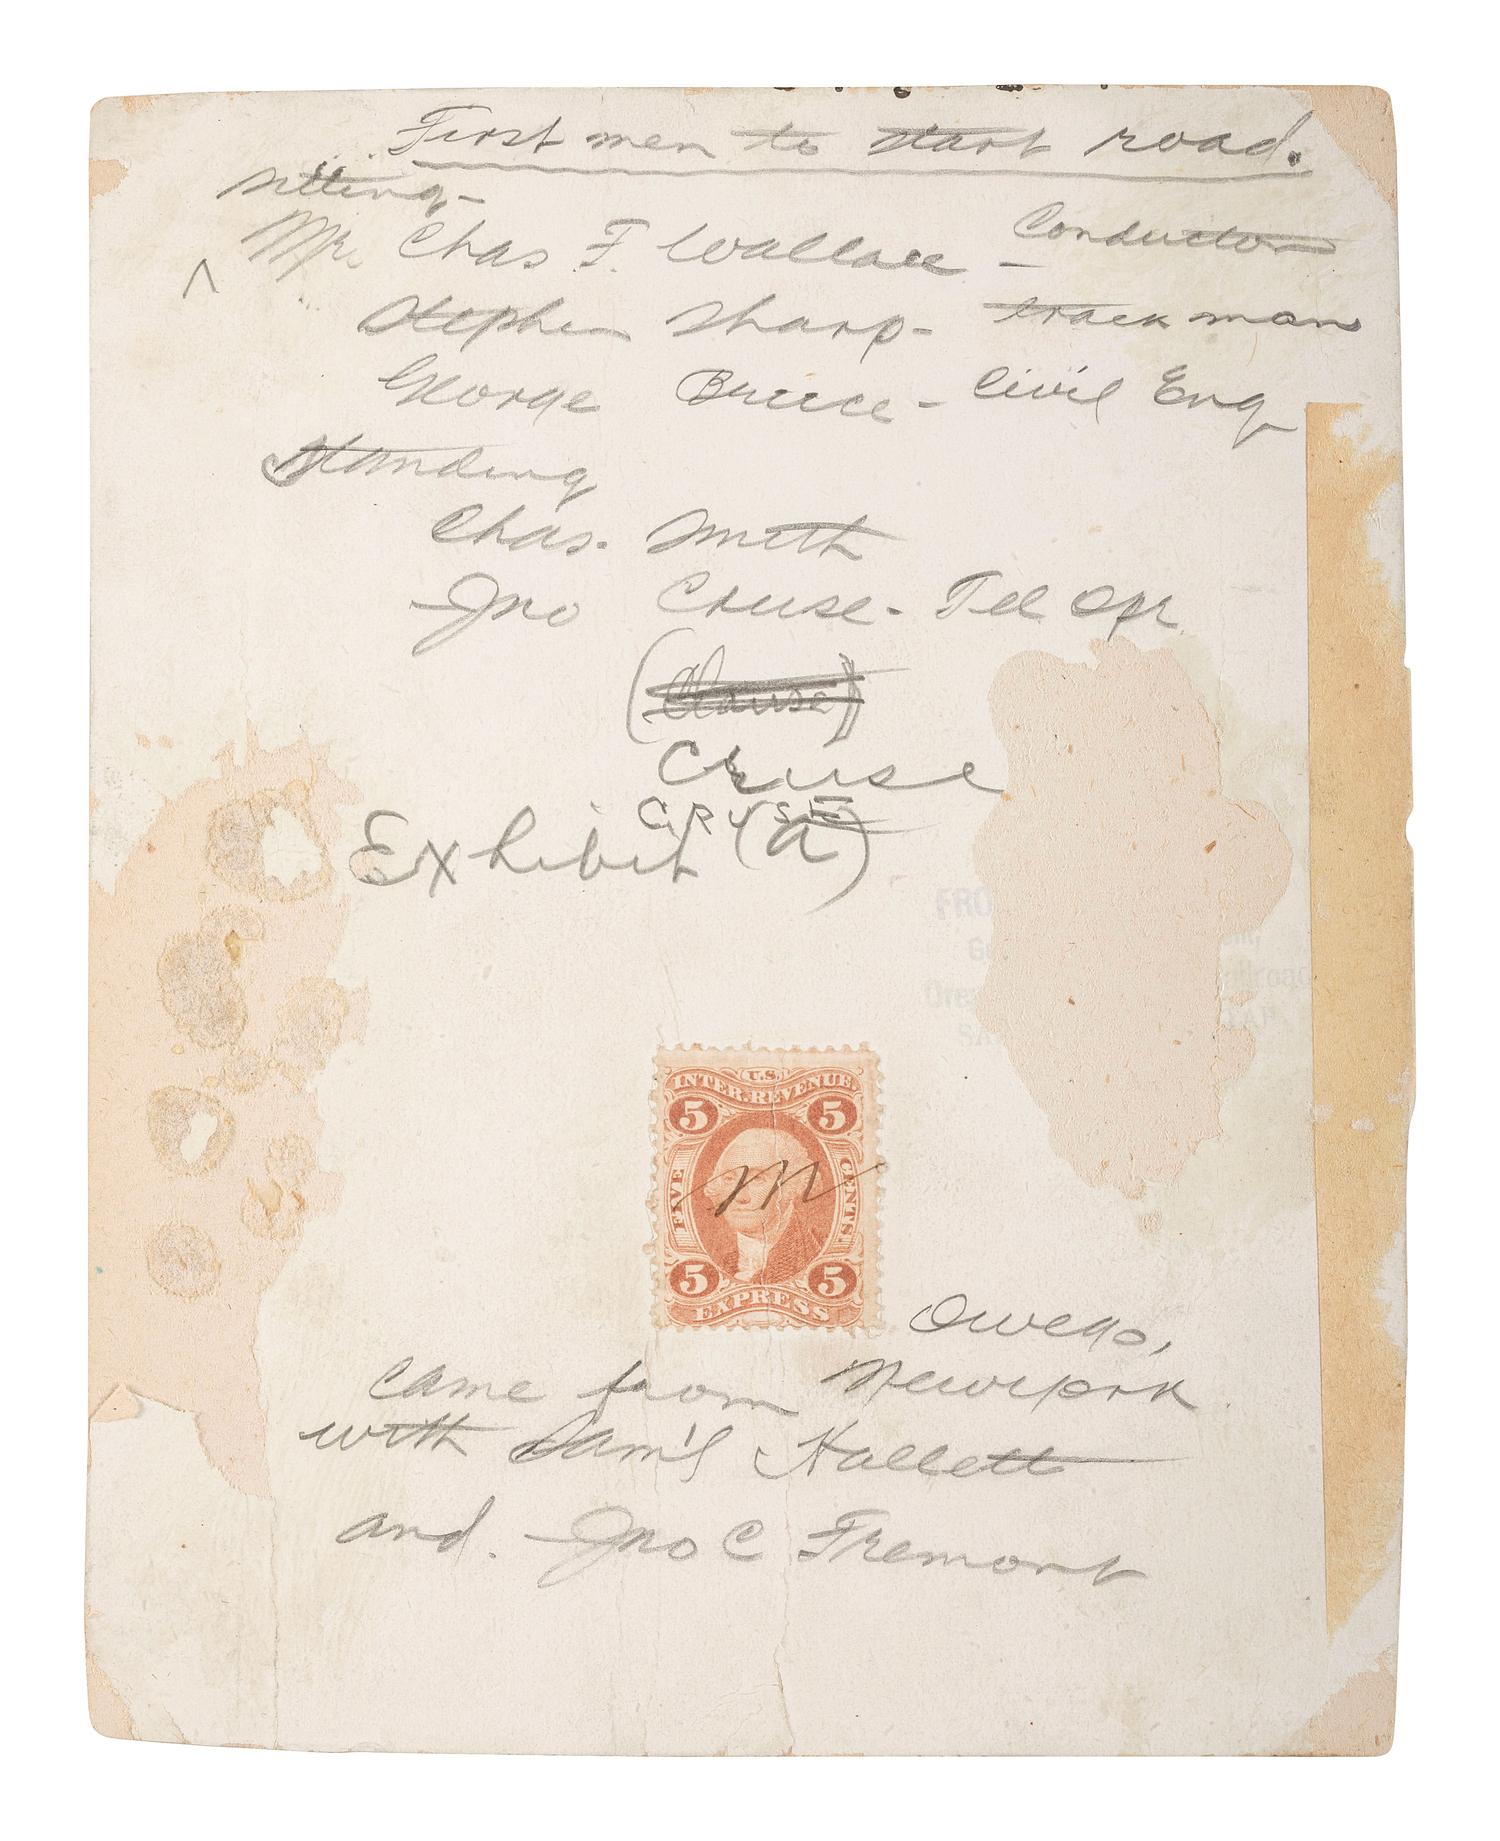 First men to start road.
Sitting-
Mr. Chas F. Wallace - Conductor
Stephen Sharp - track man
George Bruce - Civil Eng
Standing
Chas. Smith
Jno Cruse - Tel Opr
(Clause)
Cruse
CRUSE
Exhibit (A)
FRO
Railroad
U.S.
INTER. REVENUE.
5 5
FIVE CENTS.
M
5 5
EXPRESS
Owego,
came from Newyork
with Sam'l Hallett
and. Jno C Fremont